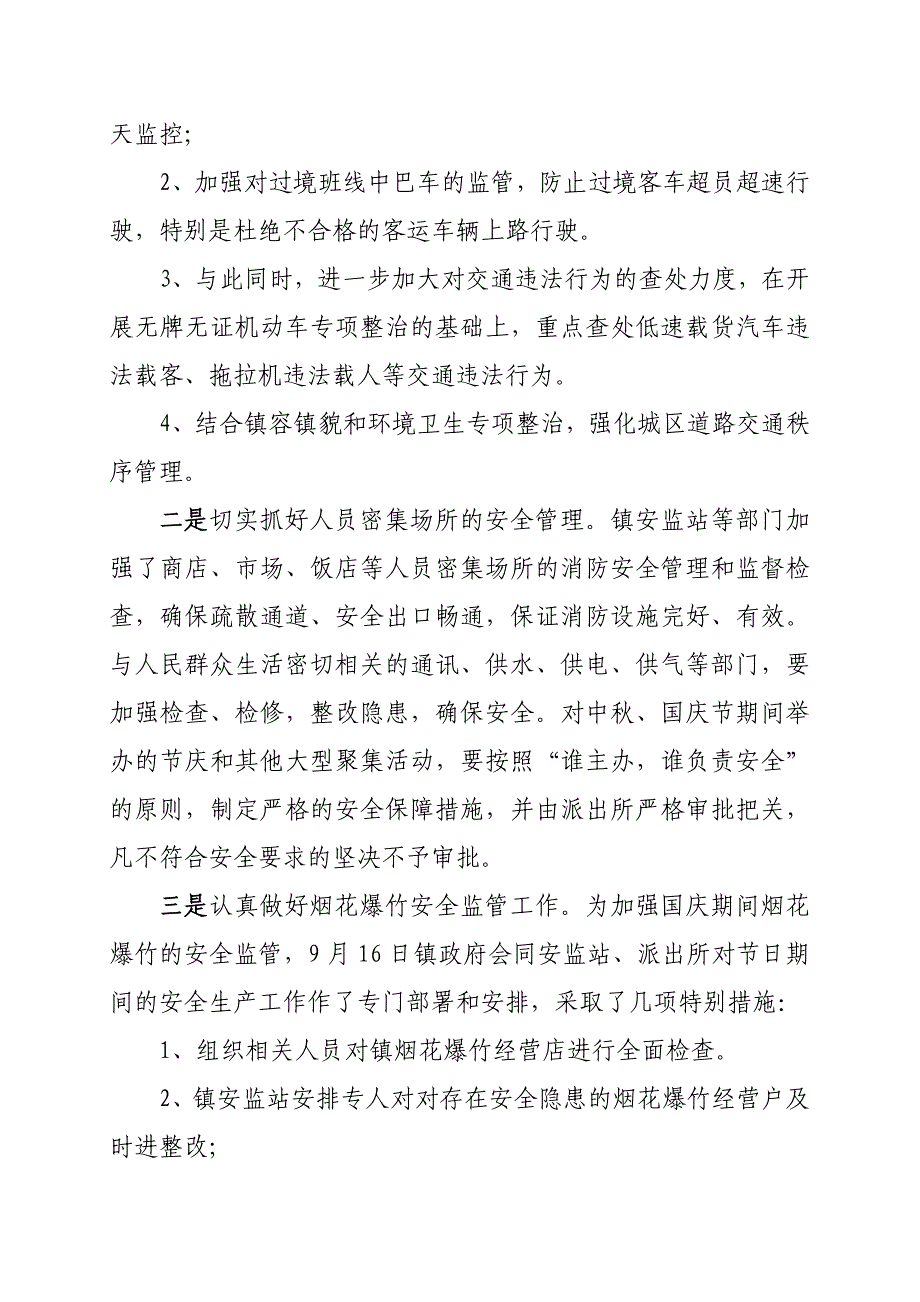 天监控；
2、加强对过境班线中巴车的监管，防止过境客车超员超速行
驶，特别是杜绝不合格的客运车辆上路行驶。
3、与此同时，进一步加大对交通违法行为的查处力度，在开
展无牌无证机动车专项整治的基础上，重点查处低速载货汽车违
法载客、拖拉机违法载人等交通违法行为。
4、结合镇容镇貌和环境卫生专项整治，强化城区道路交通秩
序管理。
二是切实抓好人员密集场所的安全管理。镇安监站等部门加
强了商店、市场、饭店等人员密集场所的消防安全管理和监督检
查，确保疏散通道、安全出口畅通，保证消防设施完好、有效。
与人民群众生活密切相关的通讯、供水、供电、供气等部门，要
加强检查、检修，整改隐患，确保安全。对中秋、国庆节期间举
办的节庆和其他大型聚集活动，要按照“谁主办，谁负责安全”
的原则，制定严格的安全保障措施，并由派出所严格审批把关，
凡不符合安全要求的坚决不予审批。
三是认真做好烟花爆竹安全监管工作。为加强国庆期间烟花
爆竹的安全监管，9 月 16 日镇政府会同安监站、派出所对节日期
间的安全生产工作作了专门部署和安排，采取了几项特别措施：
1、组织相关人员对镇烟花爆竹经营店进行全面检查。
2、镇安监站安排专人对对存在安全隐患的烟花爆竹经营户及
时进整改；